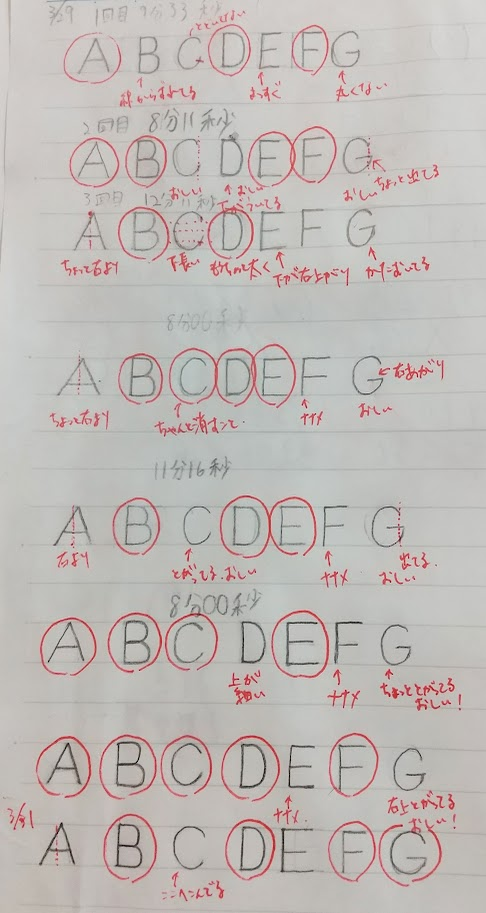 3/29 1回目 9分33秒
とじてない
A B C D E F G
まっすぐ
丸くない
2回目 8分11秒
A B C D E F G
おしい
おしい
下がういてる
おしい
ちょっと出てる
3回目 12分11秒
A B C D E F G
ちょっと右より
下長い
もうちょっと太く
下が右上がり
かたむいてる
8分00秒
A B C D E F G
ちょっと右より
ちゃんと消すこと.
ナナメ
おしい
右あがり
11分16秒
A B C D E F G
右より
とがってる.おしい
ナナメ
おしい
出てる.
8分00秒
A B C D E F G
上が
細い
ナナメ
ちょっととがってる
おしい!
A B C D E F G
ナナメ.
右上とがってる
おしい!
3/31
A B C D E F G
ここへこんでる